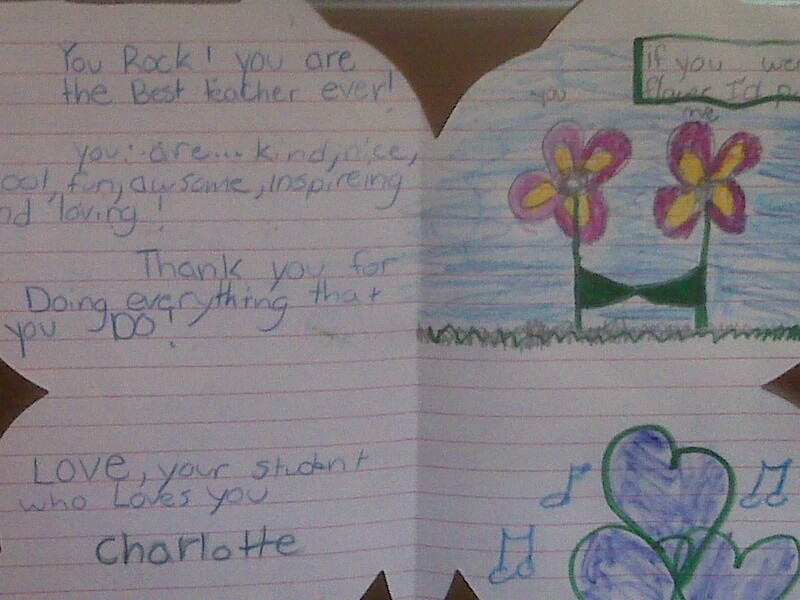 You Rock! you are
the Best teacher ever!
you are... kind, nice,
ool, fun, awsome, inspireing
nd loving!
Thank you for
Doing everything that
you DO!
Love, your student
who Loves you
Charlotte
if you wer
I'd
you
me